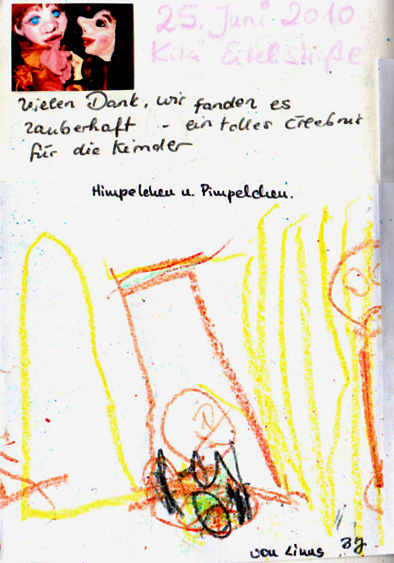 25. Juni 2010
Kita Eitelstraße
Vielen Dank, wir fanden es
zauberhaft - ein tolles Erlebnis
für die Kinder
Himpelchen u. Pimpelchen.
von Linus 3J